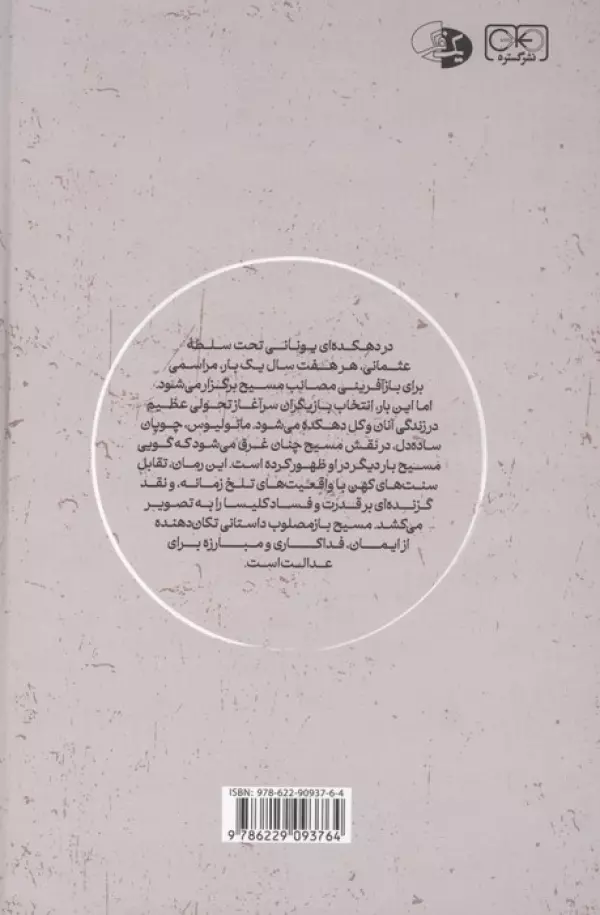 نشر گستره
در دهکده‌ای یونانی تحت سلطهٔ
عثمانی، هر هفت سال یک بار، مراسمی
برای بازآفرینی مصائب مسیح برگزار می‌شود.
اما این بار، انتخاب بازیگران سرآغاز تحولی عظیم
در زندگی آنان و کل دهکده می‌شود. مانولیوس، چوپان
ساده‌دل، در نقش مسیح چنان غرق می‌شود که گویی
مسیح بار دیگر در او ظهور کرده است. این رمان، تقابل
سنت‌های کهن با واقعیت‌های تلخ زمانه، و نقد
گزنده‌ای بر قدرت و فساد کلیسا را به تصویر
می‌کشد. مسیح بازمصلوب داستانی تکان‌دهنده
از ایمان، فداکاری و مبارزه برای
عدالت است.
ISBN: 978-622-90937-6-4
9 786229 093764